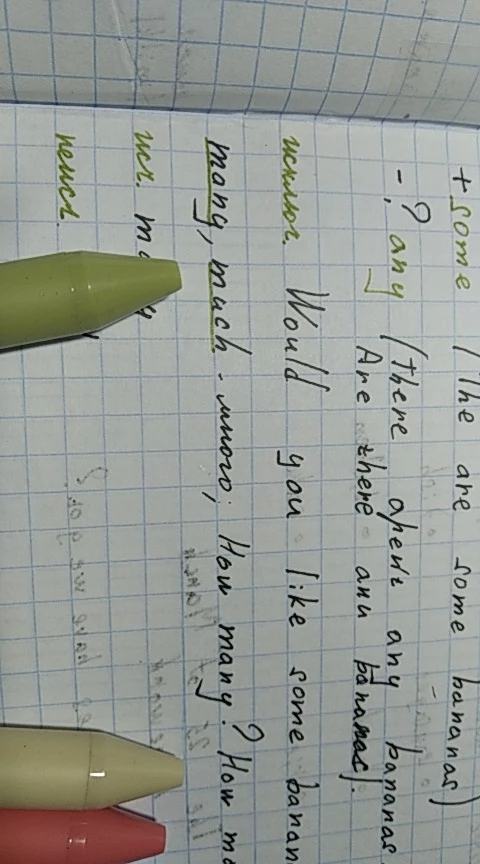 + some (The are some bananas)
- ? any (There aren't any bananas.
Are there anu bananas).
исключ. Would you like some banan
many, much - много; How many? How m
исч.
неисч.